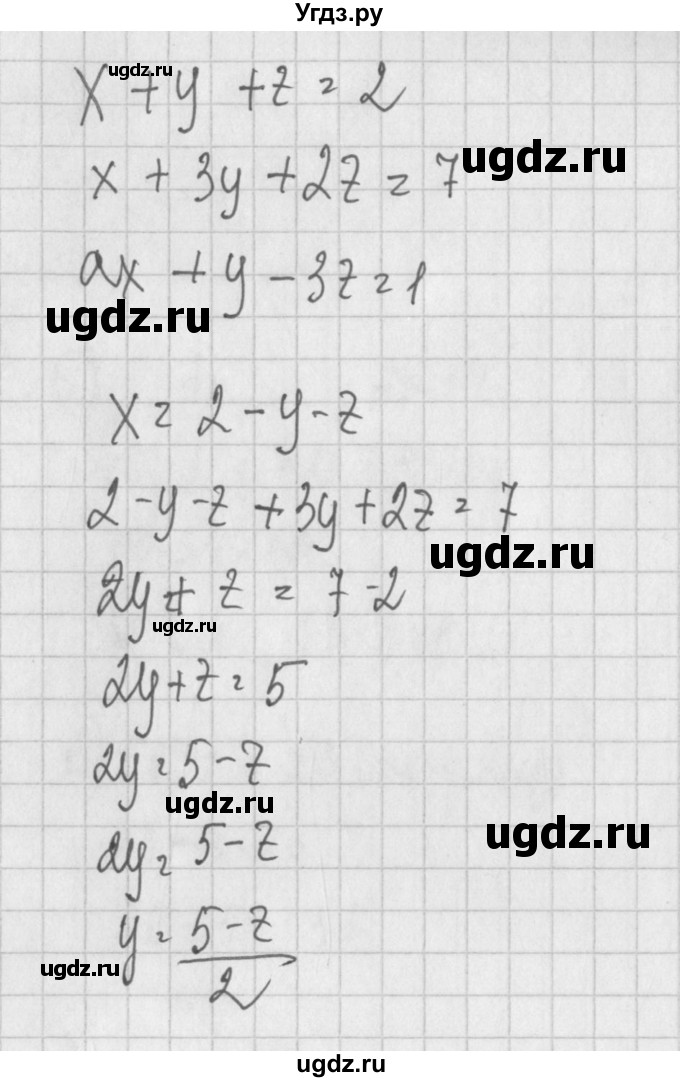 Угдз.ру
ugdz.ru
x + y + z = 2
ugdz.ru
x + 3y + 2z = 7
ax + y - 3z = 1
ugdz.ru
x = 2 - y - z
2 - y - z + 3y + 2z = 7
ugdz.ru
2y + z = 7 - 2
ugdz.ru
2y + z = 5
2y = 5 - z
ugdz.ru
ugdz.ru
2y = 5 - z
y = 5 - z
ugdz.ru
2
ugdz.ru